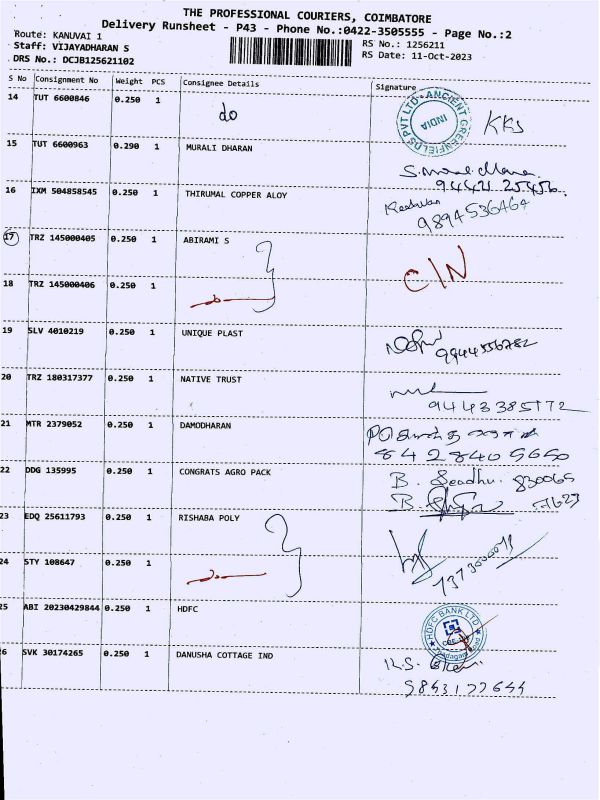 THE PROFESSIONAL COURIERS, COIMBATORE
Delivery Runsheet - P43 - Phone No.:0422-3505555 - Page No.:2
Route: KANUVAI 1
Staff: VIJAYADHARAN S
DRS No.: DCJB125621102
RS No.: 1256211
RS Date: 11-Oct-2023
S No Consignment No Weight PCS Consignee Details Signature
14 TUT 6600846 0.250 1 do
ANCIENT GREENFIELDS PVT LTD
INDIA
KKS
15 TUT 6600963 0.290 1 MURALI DHARAN
16 IXM 504858545 0.250 1 THIRUMAL COPPER ALOY
9894536464
17 TRZ 145000405 0.250 1 ABIRAMI S
C/N
18 TRZ 145000406 0.250 1 do
19 SLV 4010219 0.250 1 UNIQUE PLAST
9944556782
20 TRZ 180317377 0.250 1 NATIVE TRUST
9443385172
21 MTR 2379052 0.250 1 DAMODHARAN
842840 5650
22 DDG 135995 0.250 1 CONGRATS AGRO PACK
B. 830065
B. 7623
23 EDQ 25611793 0.250 1 RISHABA POLY
24 STY 108647 0.250 1 do
7373000011
25 ABI 20230429844 0.250 1 HDFC
HDFC BANK LTD
26 SVK 30174265 0.250 1 DANUSHA COTTAGE IND
K.S.
9843177644